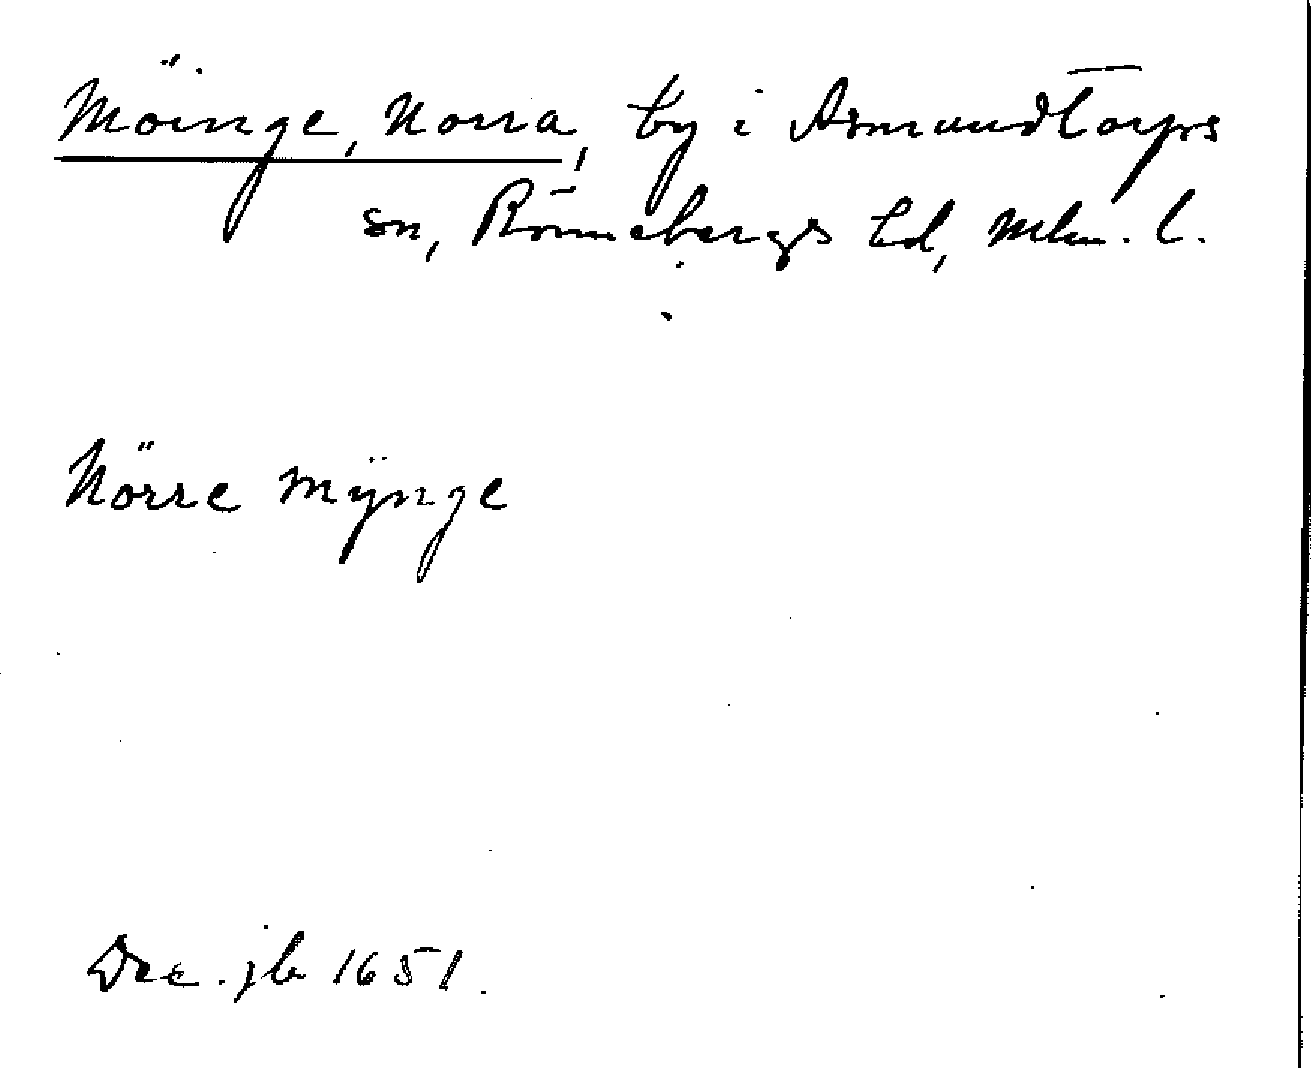 Möinge, Norra, by i Asmundtorps
sn, Rönnebergs hd, Mlm. l.
Nörre Mÿnge
Dec. jb 1651.